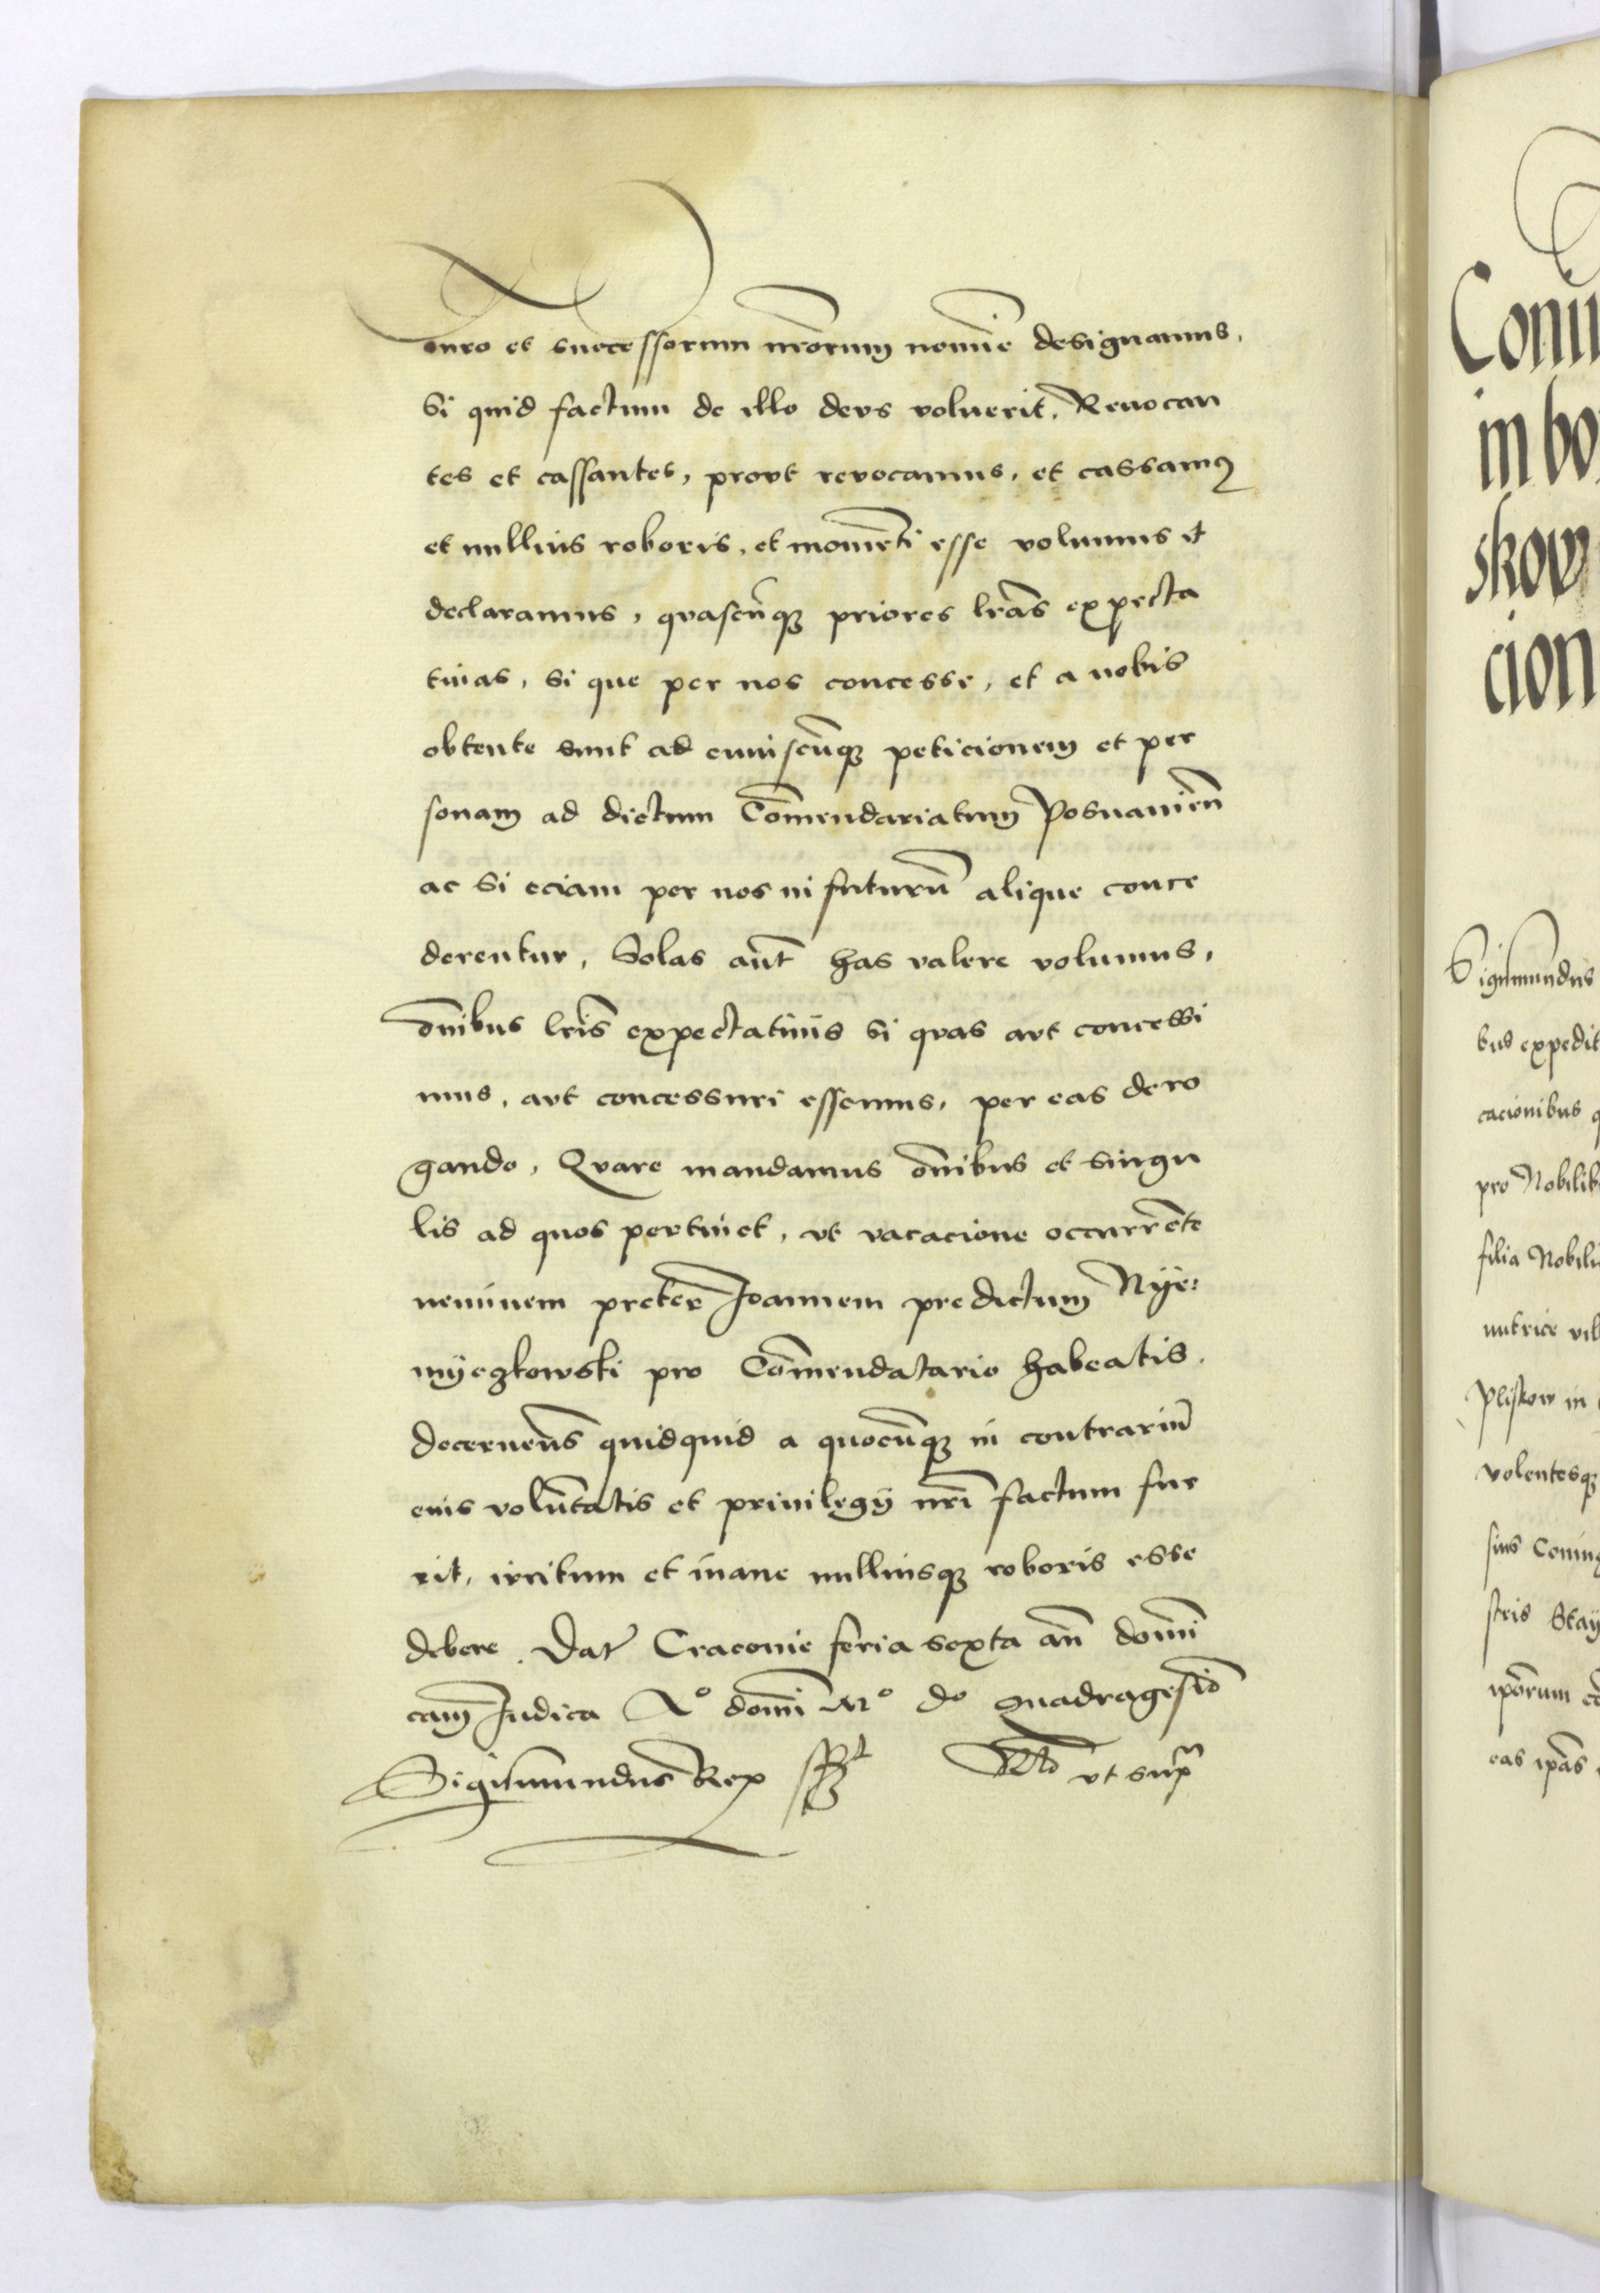 nr̃o et successorum nr̃orum nomĩe designamus,
Si quid factum de illo devs voluerit. Revocan
tes et cassantes, provt revocamus, et cassamꝰ
et nullius roboris, et momẽti esse volumus et
declaramus, qvascũqꝫ priores lr̃as expecta
tiuas, si que per nos concesse, et a nobis
obtente sunt ad cuiuscũqꝫ peticionem et per
sonam ad dictum Com̃endariatum Posnanieñ
ac si eciam per nos in futurũ alique conce
derentur, Solas aũt has valere volumus,
om̃ibus lr̃is expectatiuis si qvas avt concessi
mus, avt concessuri essemus, per eas dero
gando, Qvare mandamus om̃ibus et singu
lis ad quos pertinet, vt vacacione occurrẽte
neminem preter̃ Joannem predictum Nye:
myeczkowski pro Com̃endatario habeatis.
decernen̄s quidquid a quocũqꝫ in contrariũ
euis volũtatis et priuilegij nr̃i factum fue
rit, irritum et inane nulliusqꝫ roboris esse
debere. Dat̃ Cracouie feria sexta añ domĩ
cam Judica Aº domĩ Mº dº quadragesĩo
Sigismundus Rex sst Rlo vt supra
Conu
in bo
skow
cion
Sigismundus
bus expedit
cacionibus q
pro Nobilib
filia Nobilis
nutrice vil
Pliskow in
volentesqꝫ
sius Coniug
stris Stay
ip̃orum
eas ip̃as